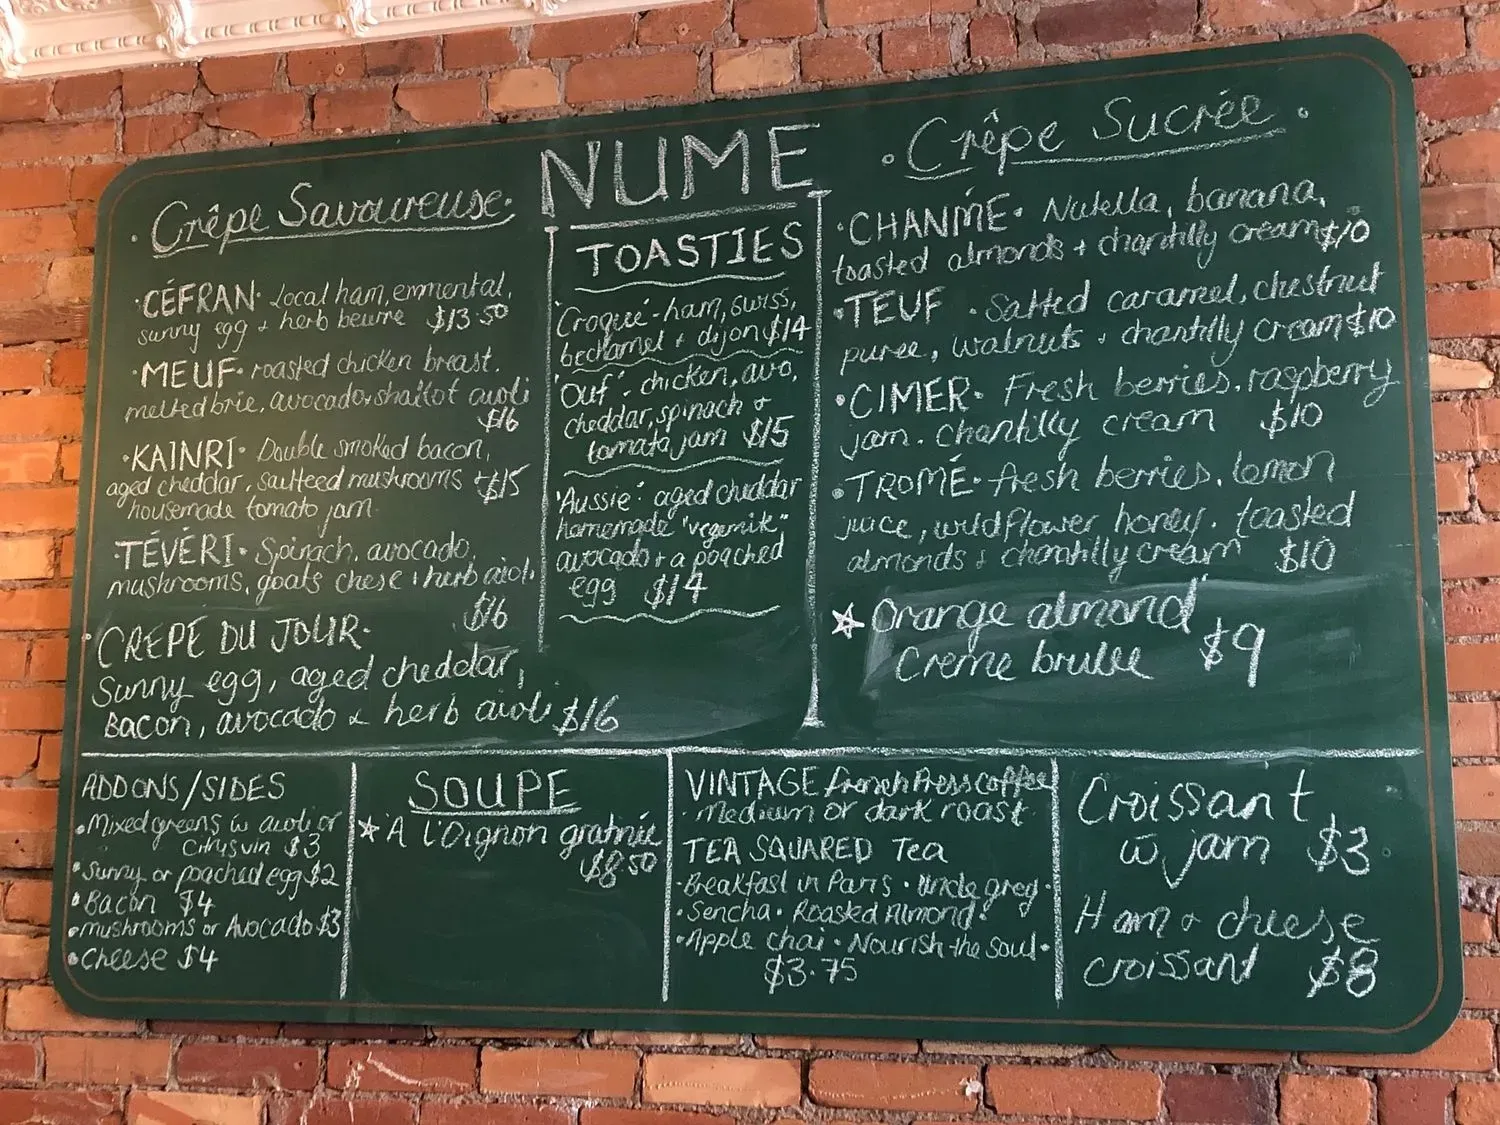 NUME
Crêpe Savoureuse
·CÉFRAN· Local ham, emmental,
sunny egg + herb beurre $13.50
·MEUF· roasted chicken breast.
melted brie, avocado + shallot aioli
$16
·KAINRI· Double smoked bacon,
aged cheddar, sauteed mushrooms + $15
housemade tomato jam.
·TÉVÉRI· Spinach, avocado,
mushrooms, goats chese + herb aioli
$16
·CREPE DU JOUR·
Sunny egg, aged cheddar,
Bacon, avocado & herb aioli $16
TOASTIES
'Croque'- ham, swiss,
bechamel + dijon $14
'Ouf': chicken, avo,
cheddar, spinach +
tomato jam $15
'Aussie': aged cheddar
homemade "vegemik"
avocado + a poached
egg $14
·Crêpe Sucrée·
·CHANMÉ· Nutella, banana,
toasted almonds + chantilly cream $10
·TEUF· Salted caramel, chestnut
puree, walnuts + chantilly cream $10
·CIMER· Fresh berries, raspberry
jam. chantilly cream $10
·TROMÉ· fresh berries, lemon
juice, wildflower honey. toasted
almonds & chantilly cream $10
☆ Orange almond
Creme brulee $9
ADDONS/SIDES
·Mixed greens w aioli or
citrus vin $3
·Sunny or poached egg $2
·Bacon $4
·mushrooms or Avocado $3
·Cheese $4
SOUPE
☆ A l'Oignon gratinée
$8.50
VINTAGE French Press Coffee
·Medium or dark roast
TEA SQUARED Tea
·Breakfast in Paris · Uncle grey·
·Sencha · Roasted Almond·
·Apple chai · Nourish the soul·
$3.75
Croissant
w jam $3
Ham + cheese
croissant $8